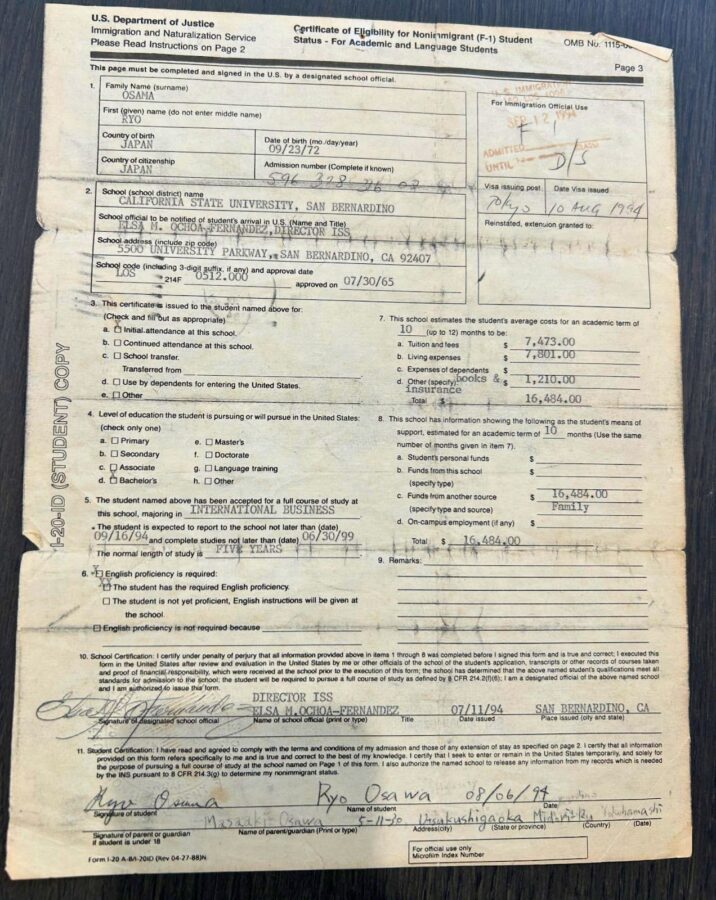 U.S. Department of Justice
Immigration and Naturalization Service
Please Read Instructions on Page 2
Certificate of Eligibility for Nonimmigrant (F-1) Student
Status - For Academic and Language Students
OMB No. 1115-
Page 3
This page must be completed and signed in the U.S. by a designated school official.
1. Family Name (surname)
OSAMA
First (given) name (do not enter middle name)
RYO
Country of birth
JAPAN
Date of birth (mo./day/year)
09/23/72
Country of citizenship
JAPAN
Admission number (Complete if known)
596 328
For Immigration Official Use
U.S. IMMIGRATION
SEP 12 1994
F 1
ADMITTED
UNTIL D/S
Visa issuing post Date Visa issued
Tokyo 10 AUG 1994
Reinstated, extension granted to:
2. School (school district) name
CALIFORNIA STATE UNIVERSITY, SAN BERNARDINO
School official to be notified of student's arrival in U.S. (Name and Title)
ELSA M. OCHOA-FERNANDEZ, DIRECTOR ISS
School address (include zip code)
5500 UNIVERSITY PARKWAY, SAN BERNARDINO, CA 92407
School code (including 3-digit suffix, if any) and approval date
LOS 214F 0512.000 approved on 07/30/65
3. This certificate is issued to the student named above for:
(Check and fill out as appropriate)
a. Initial attendance at this school.
b. Continued attendance at this school.
c. School transfer.
Transferred from
d. Use by dependents for entering the United States.
e. Other
4. Level of education the student is pursuing or will pursue in the United States:
(check only one)
a. Primary e. Master's
b. Secondary f. Doctorate
c. Associate g. Language training
d. Bachelor's h. Other
5. The student named above has been accepted for a full course of study at
this school, majoring in INTERNATIONAL BUSINESS
The student is expected to report to the school not later than (date)
09/16/94 and complete studies not later than (date) 06/30/99
The normal length of study is FIVE YEARS
6. English proficiency is required:
The student has the required English proficiency.
The student is not yet proficient, English instructions will be given at
the school.
English proficiency is not required because
7. This school estimates the student's average costs for an academic term of
10 (up to 12) months to be:
a. Tuition and fees $ 7,473.00
b. Living expenses $ 7,801.00
c. Expenses of dependents $
d. Other (specify): books & insurance $ 1,210.00
Total $ 16,484.00
8. This school has information showing the following as the student's means of
support, estimated for an academic term of 10 months (Use the same
number of months given in item 7).
a. Student's personal funds $
b. Funds from this school $
(specify type)
c. Funds from another source $ 16,484.00
(specify type and source) Family
d. On-campus employment (if any) $
Total $ 16,484.00
9. Remarks:
I-20-ID (STUDENT) COPY
10. School Certification: I certify under penalty of perjury that all information provided above in items 1 through 8 was completed before I signed this form and is true and correct; I executed this
form in the United States after review and evaluation in the United States by me or other officials of the school of the student's application, transcripts or other records of courses taken
and proof of financial responsibility, which were received at the school prior to the execution of this form; the school has determined that the above named student's qualifications meet all
standards for admission to the school; the student will be required to pursue a full course of study as defined by 8 CFR 214.2(f)(6); I am a designated official of the above named school
and I am authorized to issue this form.
DIRECTOR ISS
ELSA M. OCHOA-FERNANDEZ 07/11/94 SAN BERNARDINO, CA
Signature of designated school official Name of school official (print or type) Title Date issued Place issued (city and state)
11. Student Certification: I have read and agreed to comply with the terms and conditions of my admission and those of any extension of stay as specified on page 2. I certify that all information
provided on this form refers specifically to me and is true and correct to the best of my knowledge. I certify that I seek to enter or remain in the United States temporarily, and solely for
the purpose of pursuing a full course of study at the school named on Page 1 of this form. I also authorize the named school to release any information from my records which is needed
by the INS pursuant to 8 CFR 214.3(g) to determine my nonimmigrant status.
Ryo Osawa Ryo Osawa 08/06/94
Signature of student Name of student Date
Masaaki Osawa 5-11-30, Utsukushigaoka Midori-Ku Yokohamashi
Signature of parent or guardian
if student is under 18
Name of parent/guardian (Print or type) Address(city) (State or province) (Country) (Date)
Form I-20 A-B/I-20ID (Rev 04-27-88)N
For official use only
Microfilm Index Number